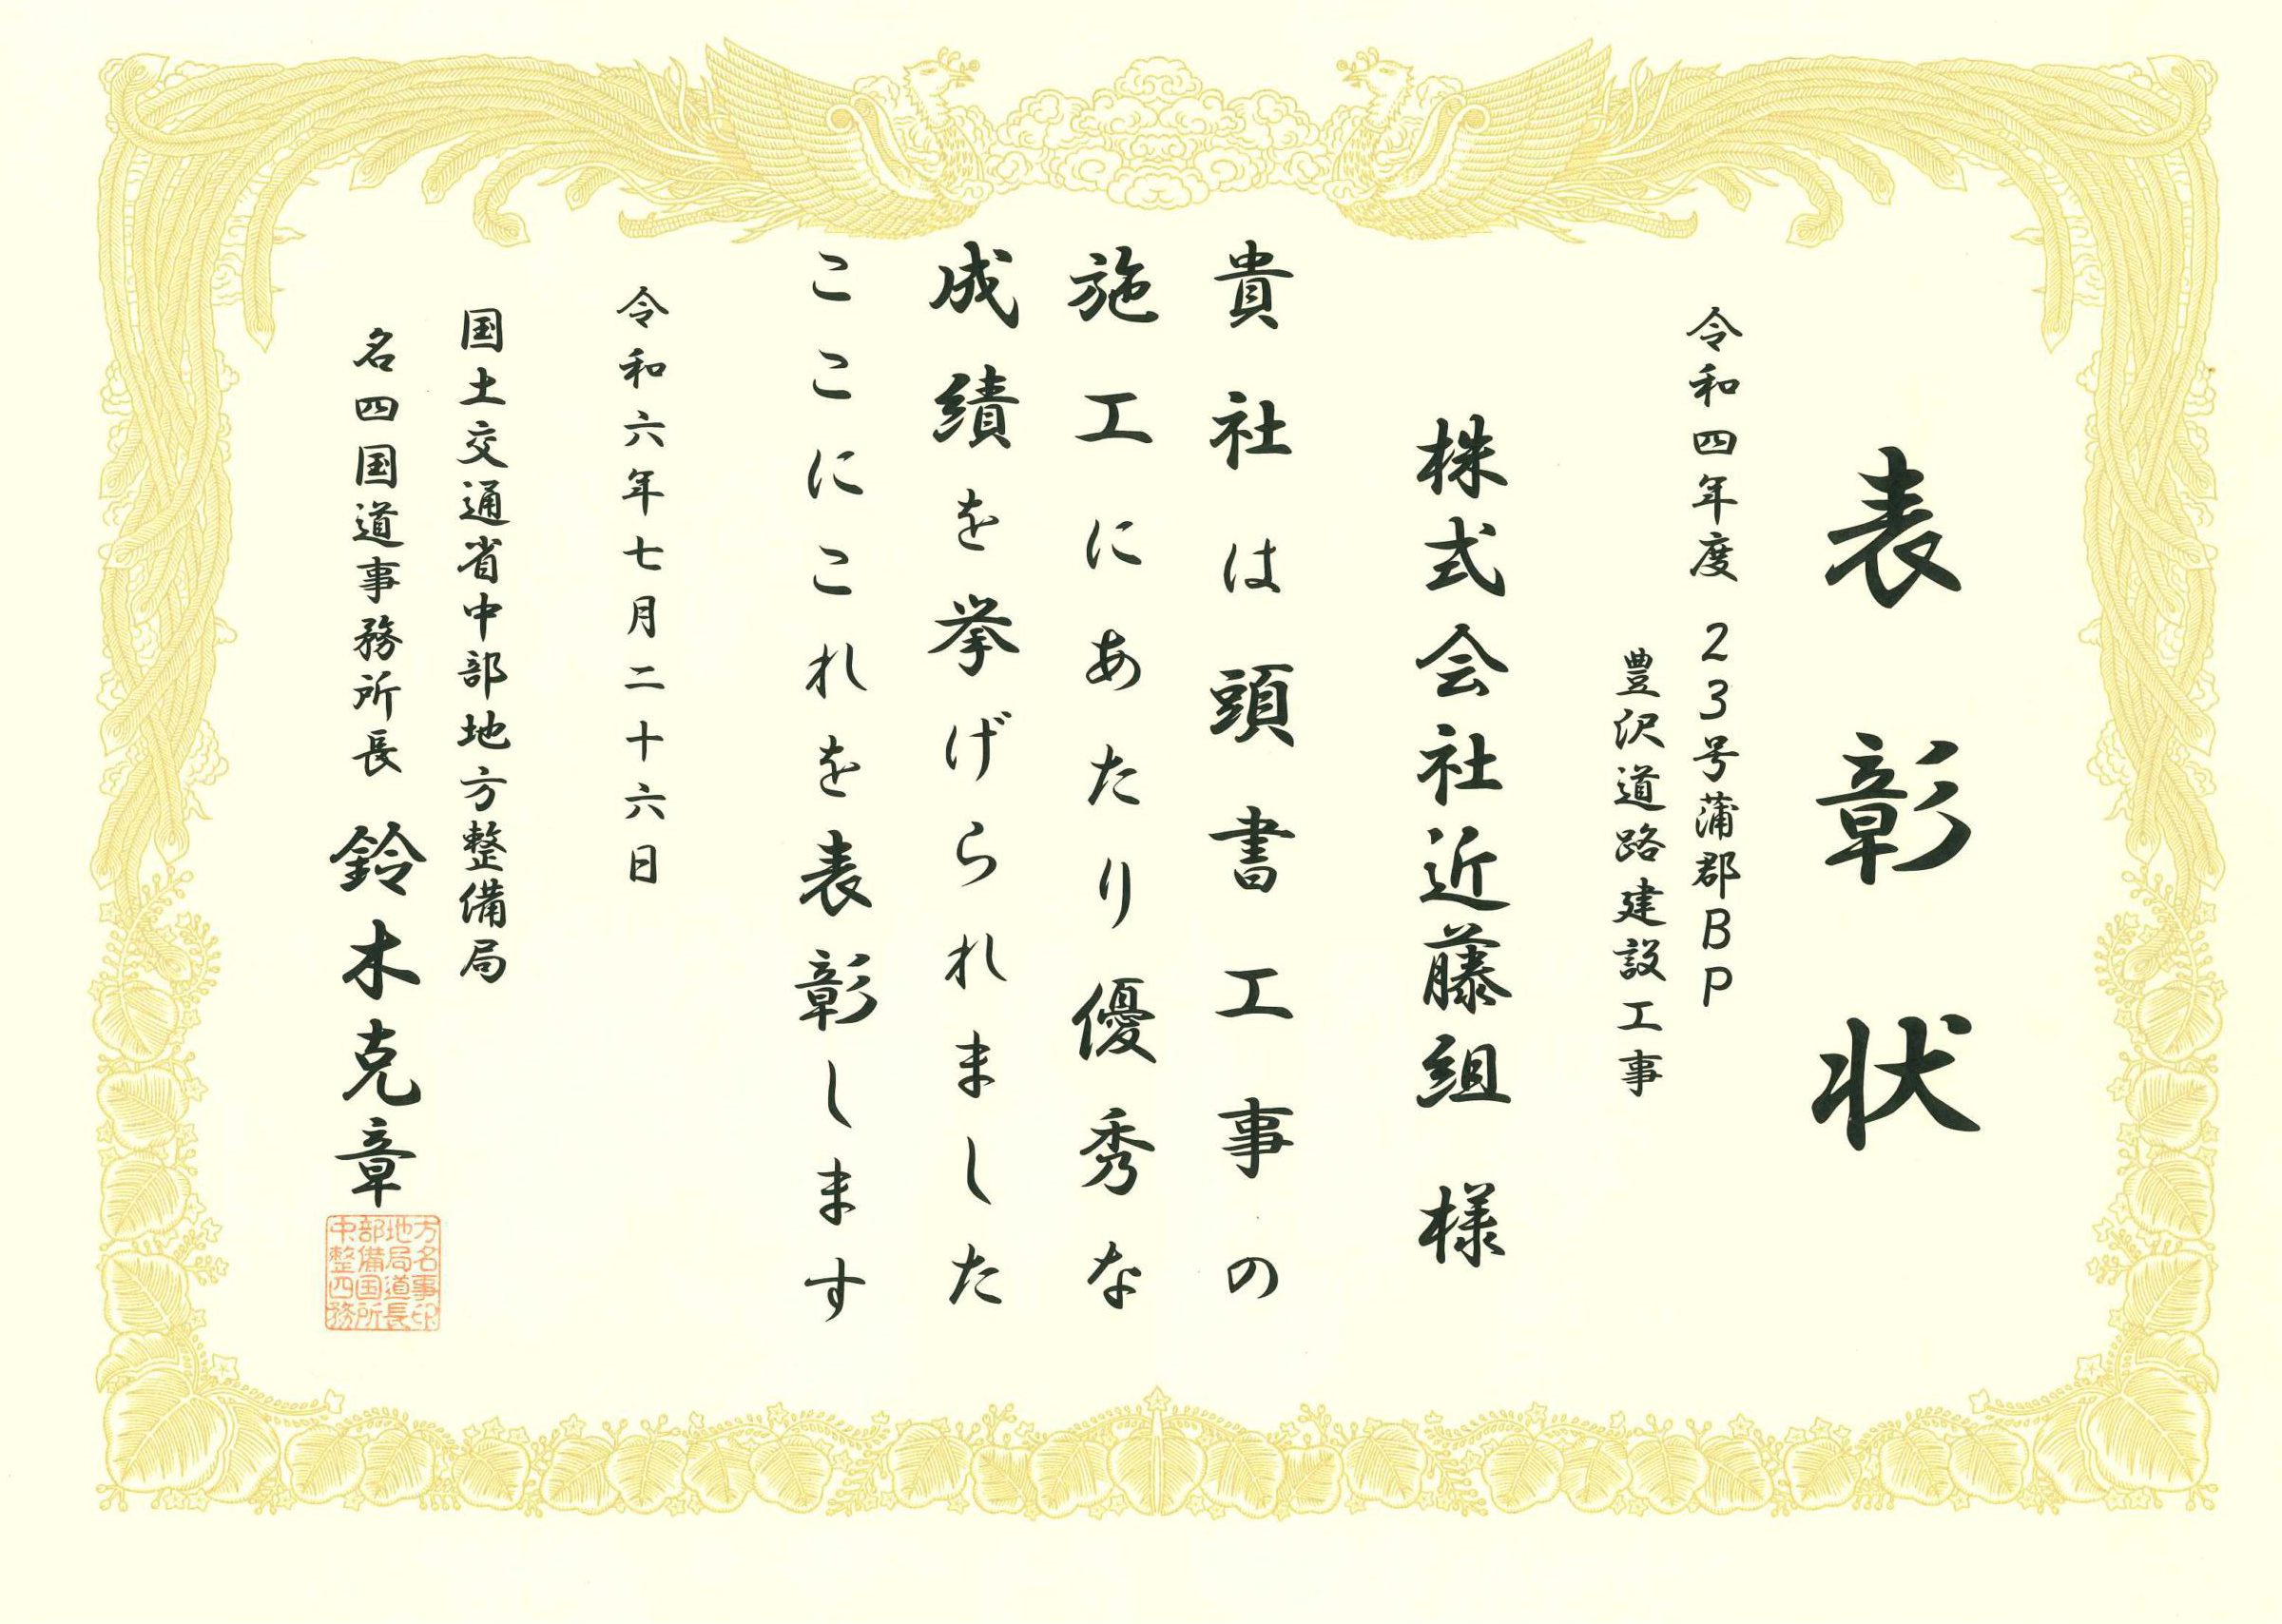 表彰状
令和四年度 23号蒲郡BP
豊沢道路建設工事
株式会社近藤組 様
貴社は頭書工事の
施工にあたり優秀な
成績を挙げられました
ここにこれを表彰します
令和六年七月二十六日
国土交通省中部地方整備局
名四国道事務所長 鈴木克章
中部地方
整備局名
四国道事
務所長印